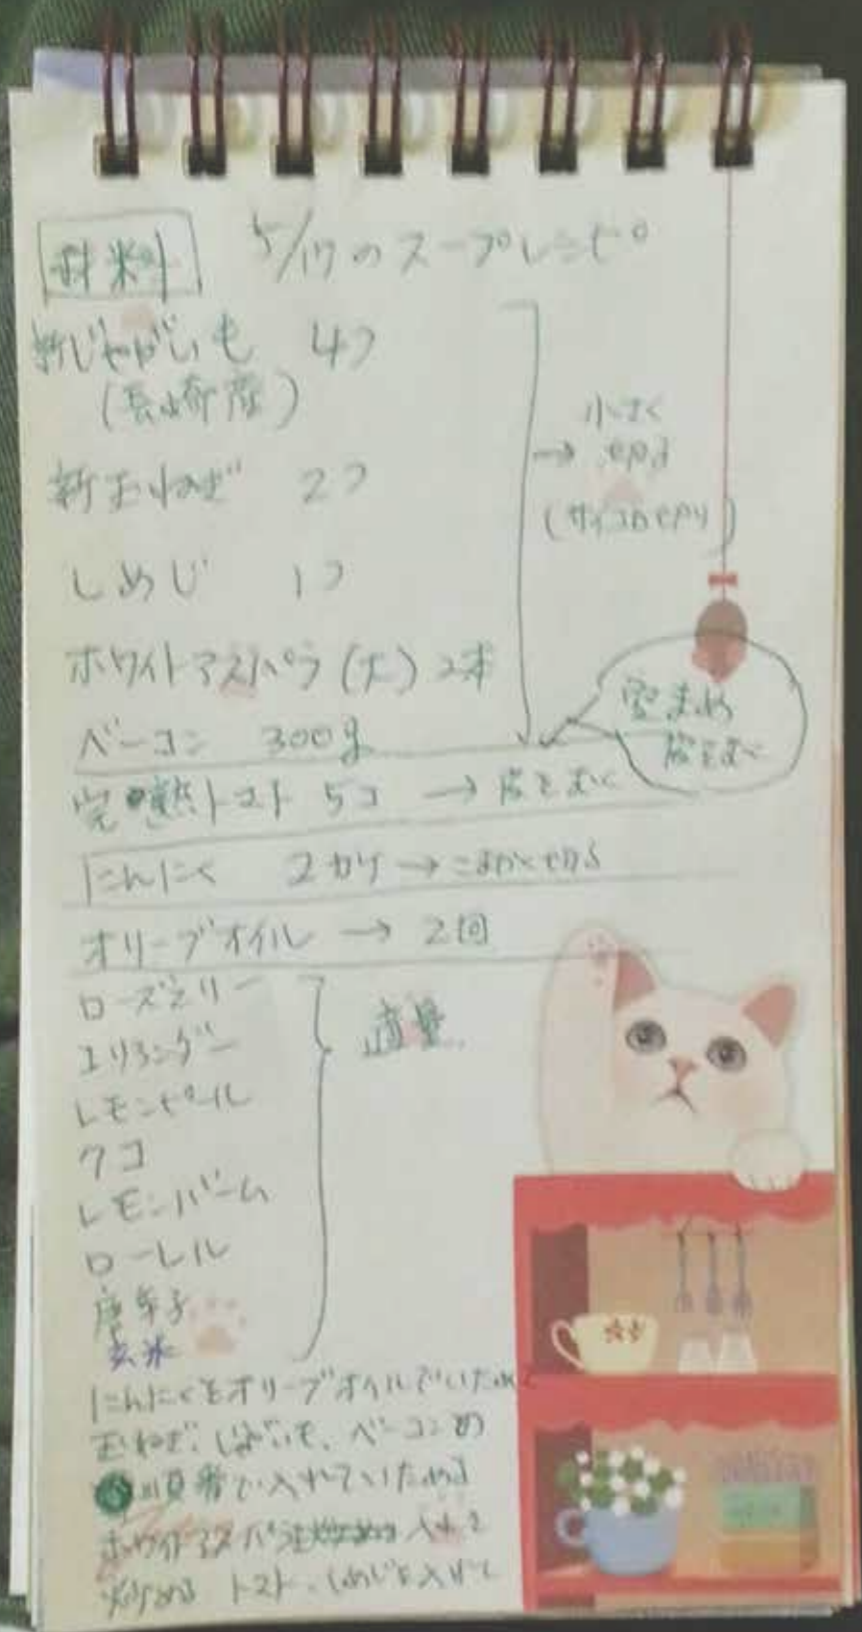 材料 5/17のスープレシピ
新じゃがいも 4つ
(長崎産)
新玉ねぎ 2つ
しめじ 1つ
ホワイトアスパラ(大) 2本
ベーコン 300g
→ 小さく
切る
(サイコロ切り)
空まめ
皮をむく
完熟トマト 5コ → 皮をむく
にんにく 2カケ → こまかく切る
オリーブオイル → 2回
ローズマリー
コリアンダー
レモンピール
クコ
レモンバーム
ローレル
唐辛子
玄米
適量
にんにくをオリーブオイルでいためて
玉ねぎ、じゃがいも、ベーコンの
順番で入れていためる
ホワイトアスパラ 入れて
炒める トマト、しめじを入れて